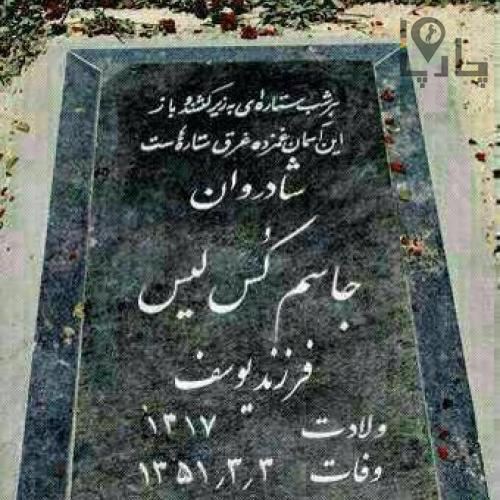 چارپا
هر شب ستاره‌ای به زیر کشند و باز
این آسمان غمزده غرق ستاره‌هاست
شادروان
جاسم کُس لیس
فرزند یوسف
ولادت ۱۳۱۷
وفات ۱۳۵۱٫۳٫۳